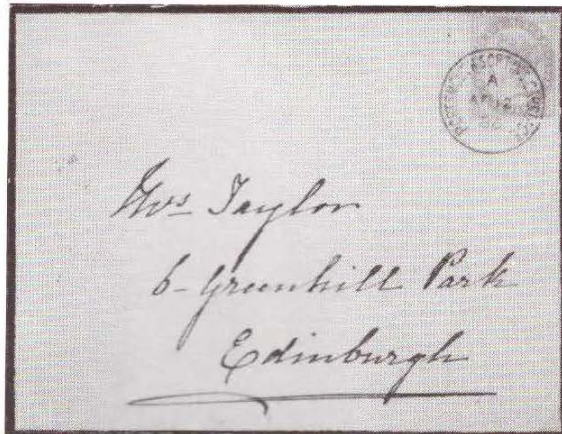 A
Mrs Taylor
6 Greenhill Park
Edinburgh